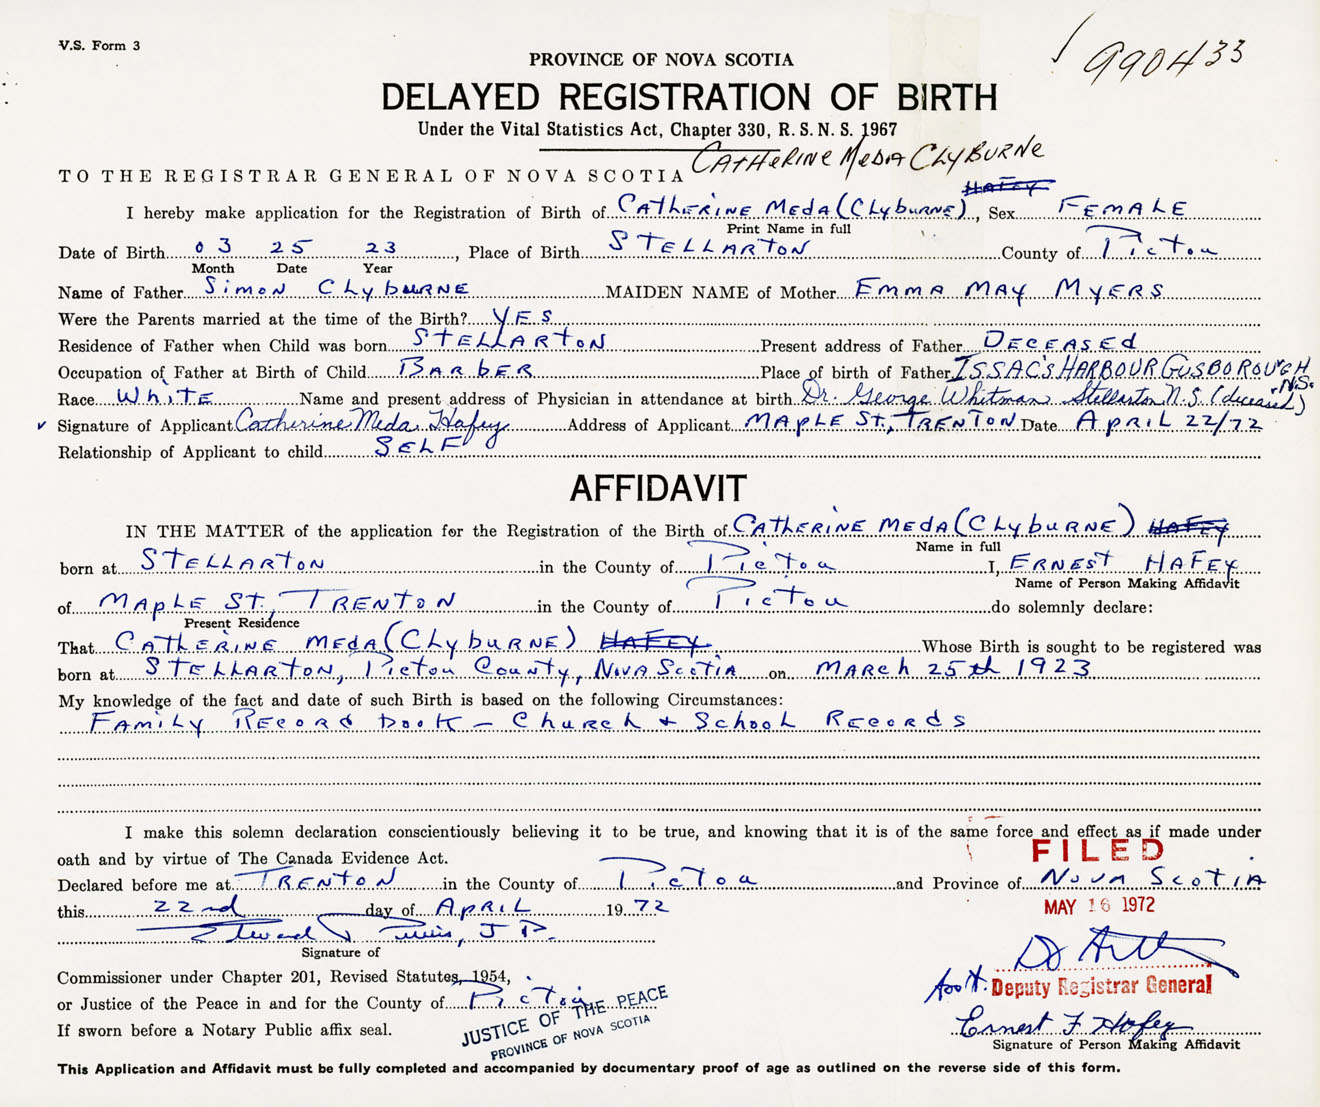 V.S. Form 3
990433
PROVINCE OF NOVA SCOTIA
DELAYED REGISTRATION OF BIRTH
Under the Vital Statistics Act, Chapter 330, R. S. N. S. 1967
CATHERINE MEDA CLYBURNE
TO THE REGISTRAR GENERAL OF NOVA SCOTIA
HAFEY
I hereby make application for the Registration of Birth of CATHERINE MEDA (CLYBURNE), Sex FEMALE
Print Name in full
Date of Birth 03 25 23, Place of Birth STELLARTON County of Pictou
Month Date Year
Name of Father SIMON CLYBURNE MAIDEN NAME of Mother EMMA MAY MYERS
Were the Parents married at the time of the Birth? YES
Residence of Father when Child was born STELLARTON Present address of Father DECEASED
Occupation of Father at Birth of Child BARBER Place of birth of Father ISSAC'S HARBOUR GUSBOROUGH N.S.
Race WHITE Name and present address of Physician in attendance at birth Dr. George Whitman Stellarton N.S. (deceased)
Signature of Applicant Catherine Meda Hafey Address of Applicant MAPLE ST., TRENTON Date APRIL 22/72
Relationship of Applicant to child SELF
AFFIDAVIT
IN THE MATTER of the application for the Registration of the Birth of CATHERINE MEDA (CLYBURNE) HAFEY
Name in full
born at STELLARTON in the County of Pictou I, ERNEST HAFEY
Name of Person Making Affidavit
of MAPLE ST., TRENTON in the County of Pictou do solemnly declare:
Present Residence
That CATHERINE MEDA (CLYBURNE) HAFEY Whose Birth is sought to be registered was
born at STELLARTON, Pictou County, NOVA SCOTIA on MARCH 25th 1923
My knowledge of the fact and date of such Birth is based on the following Circumstances:
FAMILY RECORD BOOK - CHURCH + SCHOOL RECORDS
I make this solemn declaration conscientiously believing it to be true, and knowing that it is of the same force and effect as if made under
oath and by virtue of The Canada Evidence Act.
FILED
Declared before me at TRENTON in the County of PICTOU and Province of NOVA SCOTIA
this 22nd day of APRIL 1972
MAY 16 1972
Edward, J.P.
Signature of
Commissioner under Chapter 201, Revised Statutes, 1954,
Ass't. Deputy Registrar General
or Justice of the Peace in and for the County of Pictou
JUSTICE OF THE PEACE
PROVINCE OF NOVA SCOTIA
If sworn before a Notary Public affix seal.
Ernest F Hafey
Signature of Person Making Affidavit
This Application and Affidavit must be fully completed and accompanied by documentary proof of age as outlined on the reverse side of this form.